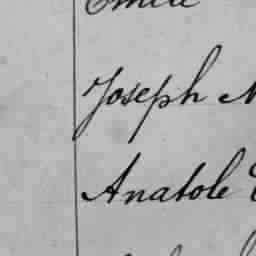 Emile
Joseph
Anatole